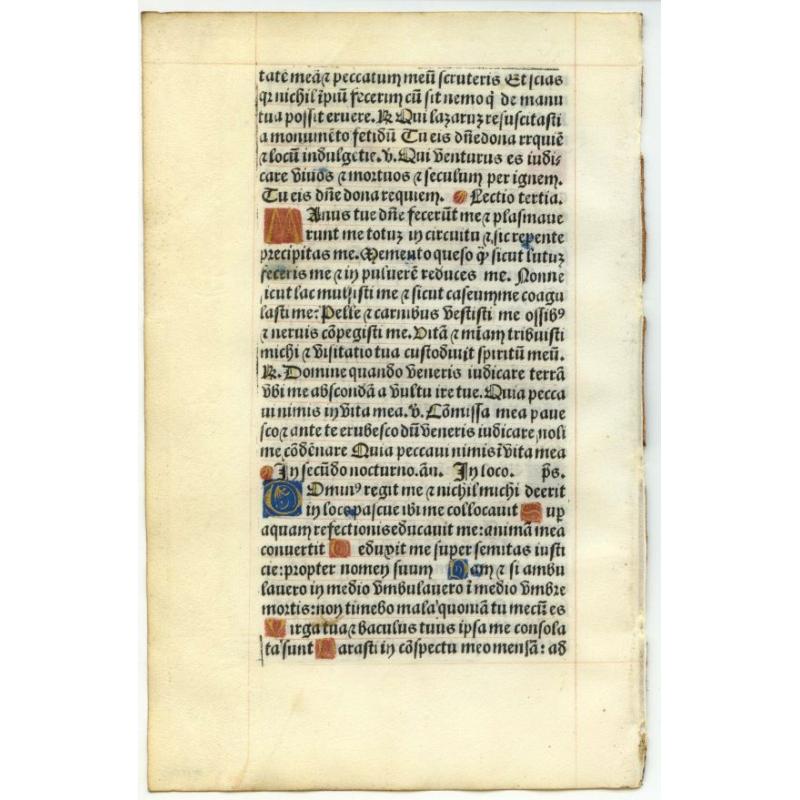 tatē meā ⁊ peccatum meū scruteris Et scias
qꝛ nichil īpiū fecerim cū sit nemo q̄ de manu
tua possit eruere. ℟ Qui lazaruꝫ resuscitasti
a monumēto fetidū Tu eis dn̄e dona rrquiē
⁊ locū indulgētie. v̄. Qui venturus es iudi-
care vivos ⁊ mortuos ⁊ seculum per ignem.
Tu eis dn̄e dona requiem. Lectio tertia.
MAnus tue dn̄e fecerūt me ⁊ plasmaue
runt me totuꝫ in circuitu ⁊ sic repente
precipitas me. Memento queso ꝙ sicut lutuꝫ
feceris me ⁊ in puluerē reduces me. Nonne
sicut lac mulsisti me ⁊ sicut caseum me coagu
lasti me: Pelle ⁊ carnibus vestisti me ossibꝰ
⁊ neruis cōpegisti me. Vitā ⁊ miam̄ tribuisti
michi ⁊ visitatio tua custodiuit spiritū meū.
℟. Domine quando veneris iudicare terrā
vbi me abscondā a vultu ire tue. Quia pecca
ui nimis in vita mea. v̄. Cōmissa mea paue
sco ⁊ ante te erubesco dū veneris iudicare noli
me cōdēnare Quia peccaui nimis ī vita mea
In secūdo nocturno. an̄. In loco. ps̄.
DOminꝰ regit me ⁊ nichil michi deerit
in loco pascue ibi me collocauit Sup
aquam refectionis educauit me: animā mea
conuertit Deduxit me super semitas iusti
cie: propter nomen suum Nam ⁊ si ambu
lauero in medio vmbulauero ī medio vmbre
mortis: non timebo mala quoniā tu mecū es
Virga tua ⁊ baculus tuus ipsa me consola
ta sunt Parasti in cōspectu meo mensā: ad